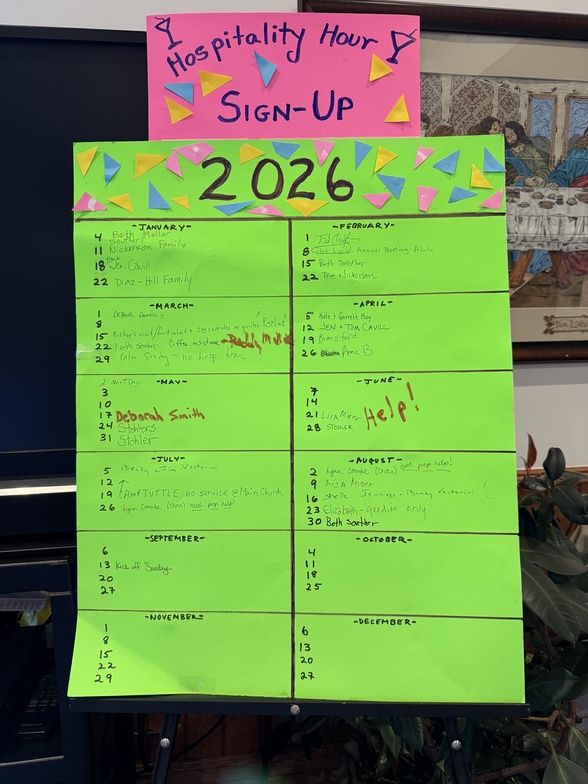 Hospitality Hour
SIGN-UP
2026
-JANUARY-
4 Beth Mollar
11 Nickerson Family
18 Jen Cavill
22 Diaz-Hill Family
-FEBRUARY-
1
8 Annual Meeting - ALL
15 Beth Souther
22 The Nickerson
-MARCH-
1 Family
8
15 Bishop's visit "Potluck"
22 Beth Souther Coffee
29 Palm Sunday - no hosp hour
-APRIL-
5 Kate & Garrett May
12 JEN + TOM CAVILL
19 Bransford
26 Anne B
-MAY-
3
10
17 Deborah Smith
24 Stohlers
31 Stohler
-JUNE-
7
14
21 Lisa Miser
28 STOHLER
Help!
-JULY-
5 Becky + Jim Venturini
12
19 CAMP TUTTLE no service @ Main Church
26 Lynn (Chris) need prep help!
-AUGUST-
2 Lynn (Chris) need prep help!
9 LISA Miser
16 Shelle Jennings + Becky Venturini
23 Elizabeth - goodies only
30 Beth Souther
-SEPTEMBER-
6
13 Kick off Sunday
20
27
-OCTOBER-
4
11
18
25
-NOVEMBER-
1
8
15
22
29
-DECEMBER-
6
13
20
27